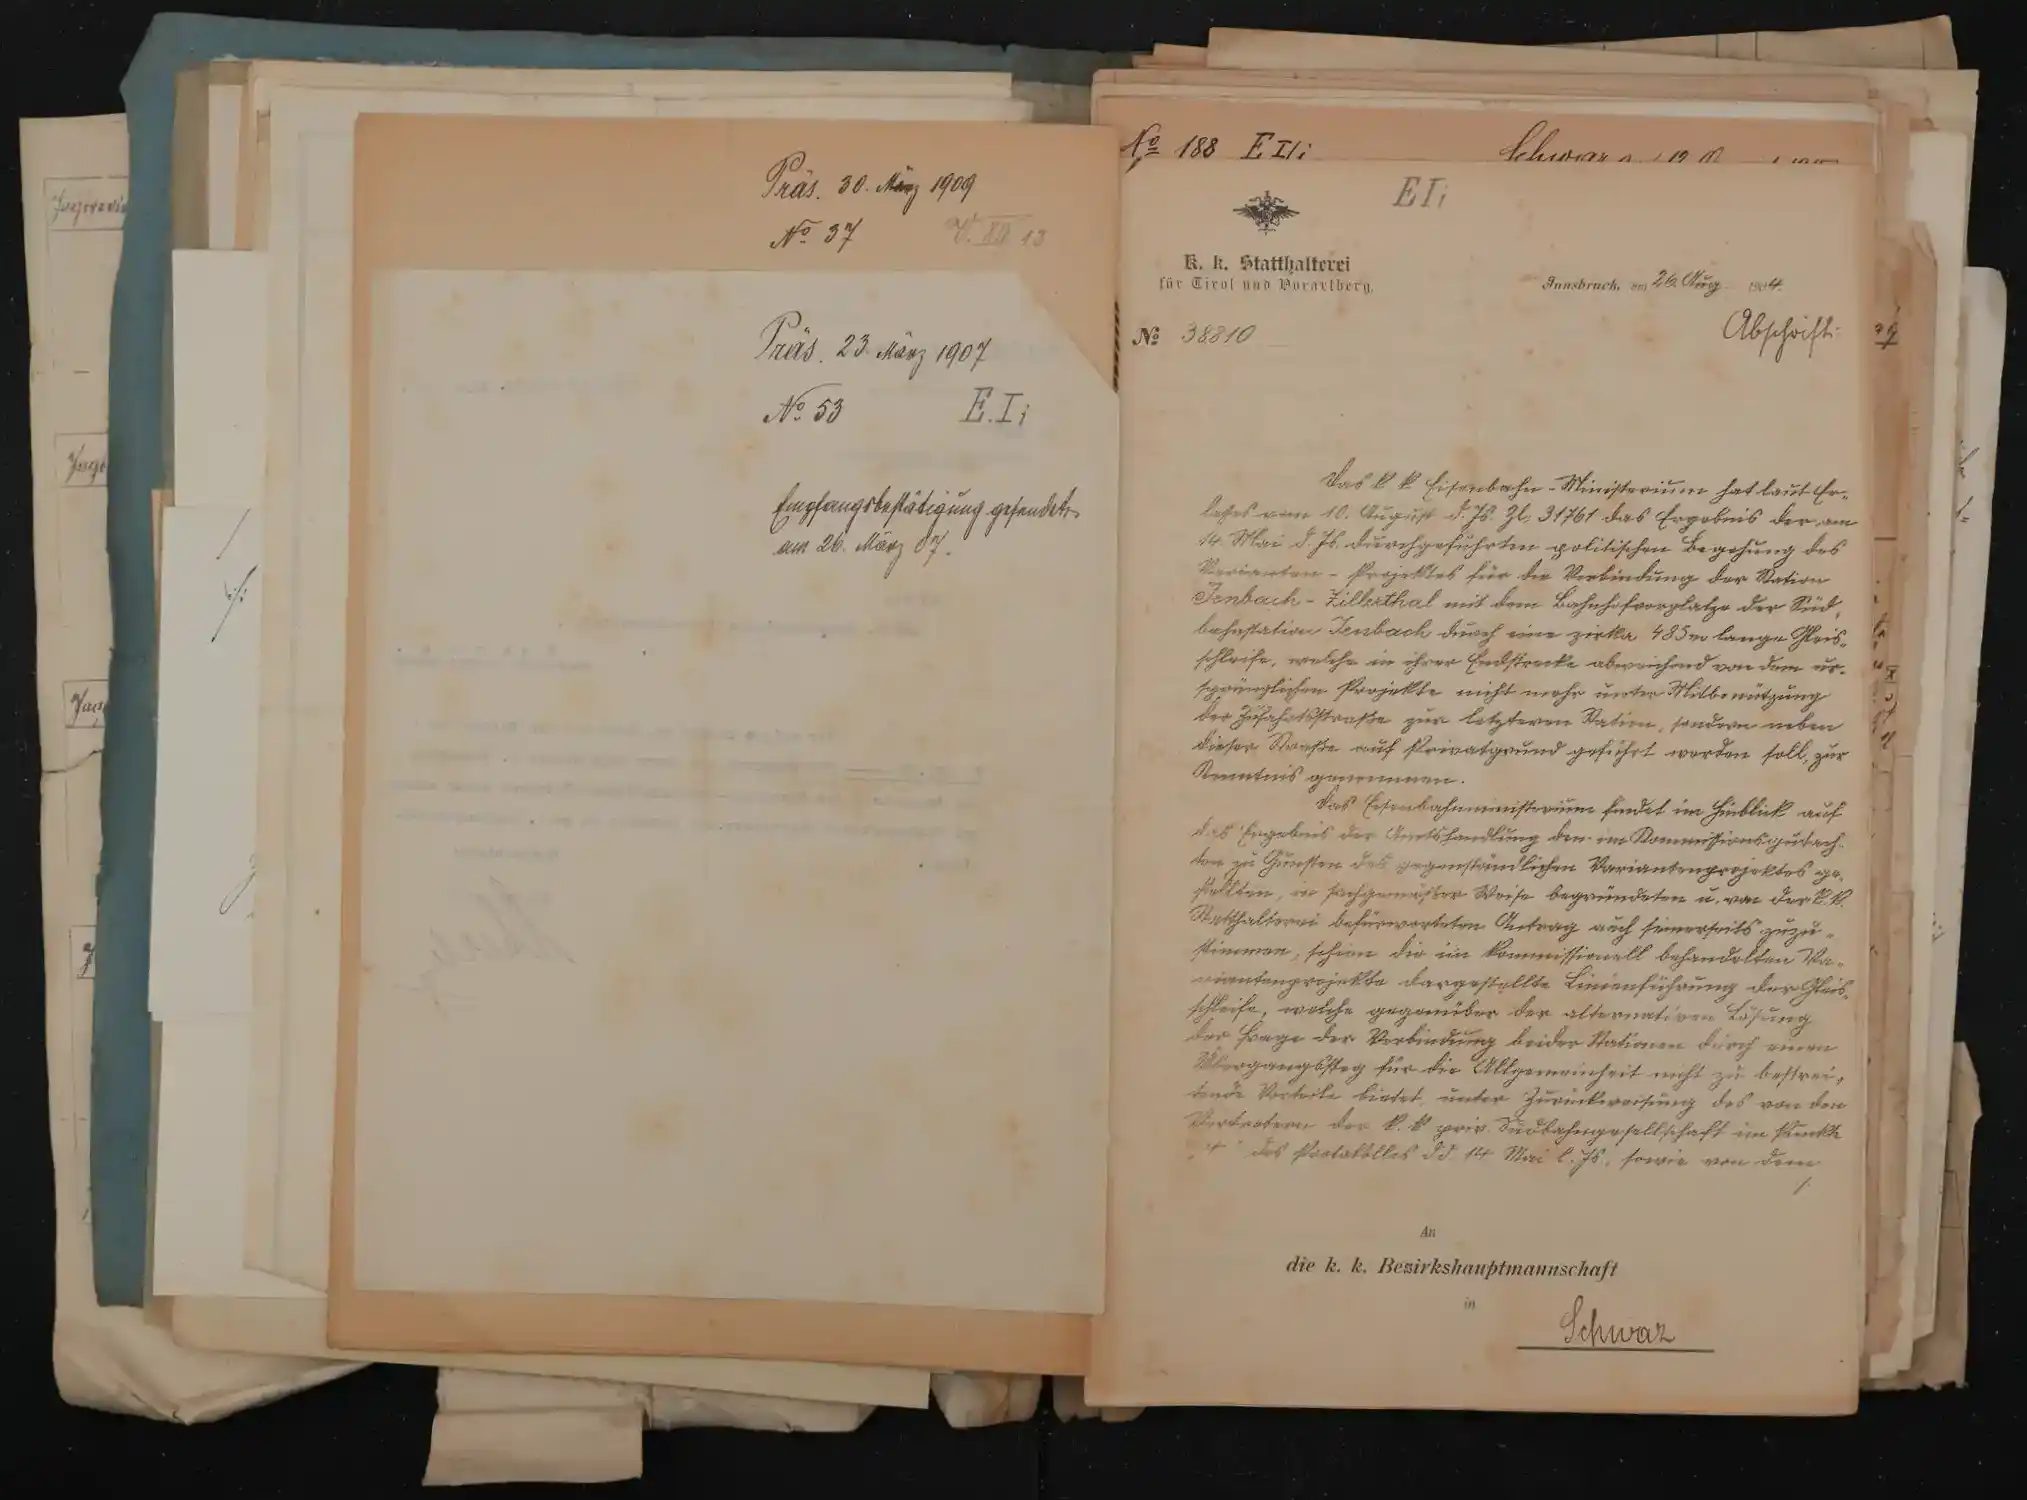 Präs. 30. März 1909
No 37
V. XII 13
Präs. 23. März 1907
No 53 E.I.i
Empfangsbestätigung gesendet
am 26. März 07.
No 188 E I/i Schwaz
E I i
K. k. Statthalterei
für Tirol und Vorarlberg.
Innsbruck, am 26. Aug. 1904.
No 38810
Abschrift.
Das k k Eisenbahn-Ministerium hat laut Er-
laßes vom 10. August d. Js. Zl. 31761 das Ergebnis der am
14. Mai d. Js. durchgeführten politischen Begehung des
Varianten-Projektes für die Verbindung der Station
Jenbach-Zillerthal mit dem Bahnhofvorplatze der Süd-
bahnstation Jenbach durch eine zirka 485 m lange Gleis-
schleife, welche in ihrer Endstrecke abweichend von dem ur-
sprünglichen Projekte nicht mehr unter Mitbenützung
der Zufahrtsstraße zur letzteren Station, sondern neben
dieser Straße auf Privatgrund geführt werden soll, zur
Kenntnis genommen.
Das Eisenbahnministerium findet im Hinblick auf
das Ergebnis der Amtshandlung dem im Kommissionsgutach-
ten zu Gunsten des gegenständlichen Variantenprojektes ge-
stellten, in sachgemäßer Weise begründeten u. von der k. k.
Statthalterei befürworteten Antrag auch seinerseits zuzu-
stimmen, die im kommissionell behandelten Va-
riantenprojekte dargestellte Linienführung der Gleis-
schleife, welche gegenüber der alternativen Lösung
der Frage der Verbindung beider Stationen durch einen
Übergangssteg für die Allgemeinheit nicht zu bestrei-
tende Vorteile bietet, unter Zurückweisung des von den
Vertretern der k. k. priv. Südbahngesellschaft im Punkte
des Protokolles dd 14 Mai l. Js., sowie von dem
./.
An
die k. k. Bezirkshauptmannschaft
in
Schwaz